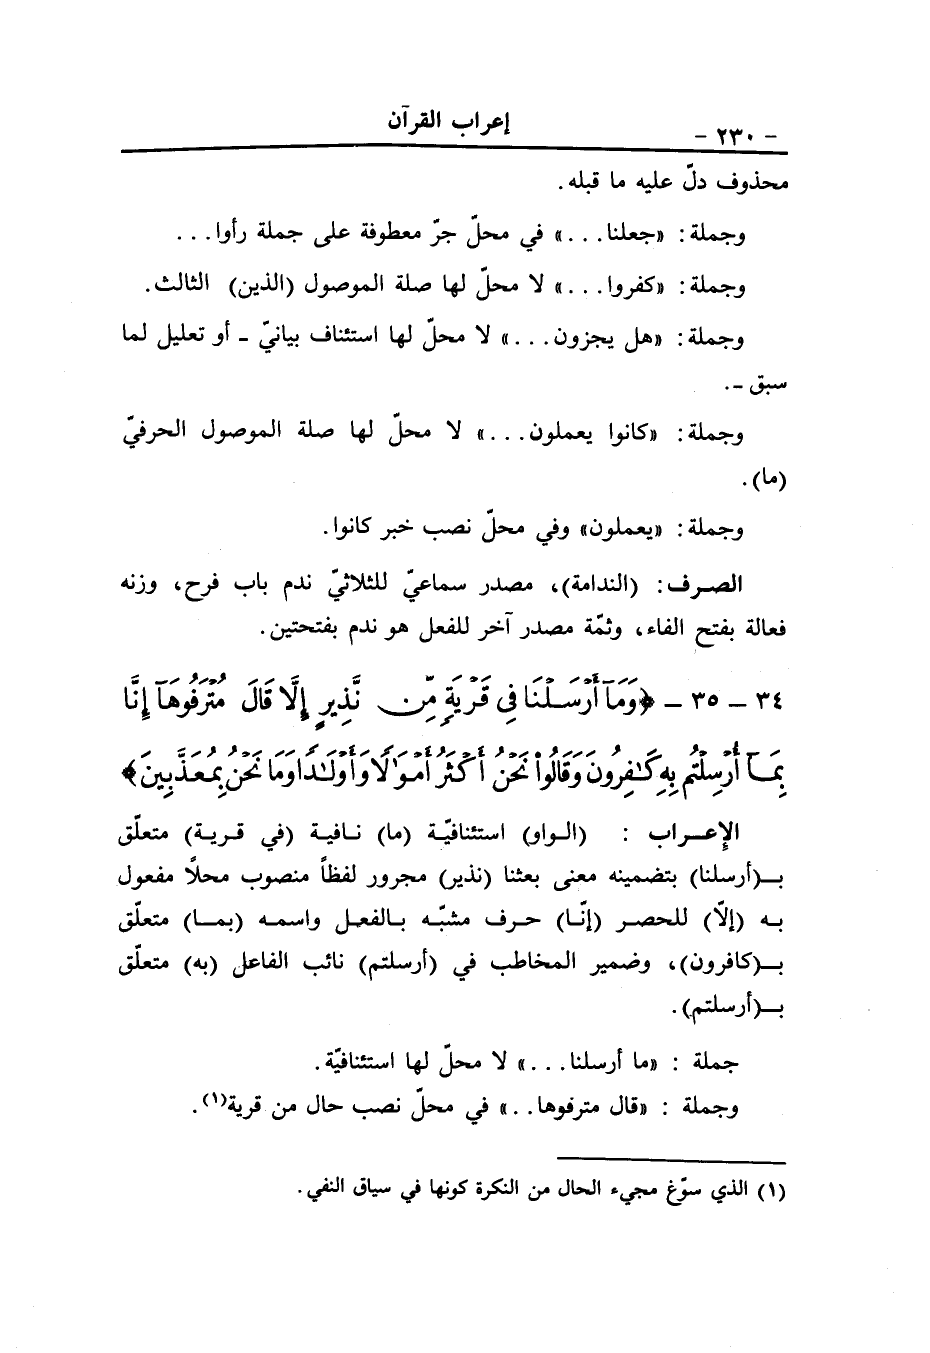 - ٢٣٠ -
إعراب القرآن
محذوف دلّ عليه ما قبله.
وجملة: «جعلنا...» في محلّ جرّ معطوفة على جملة رأوا...
وجملة: «كفروا...» لا محلّ لها صلة الموصول (الذين) الثالث.
وجملة: «هل يجزون...» لا محلّ لها استئناف بيانيّ ـ أو تعليل لما
سبق ـ.
وجملة: «كانوا يعملون...» لا محلّ لها صلة الموصول الحرفيّ
(ما).
وجملة: «يعملون» وفي محلّ نصب خبر كانوا.
الصرف: (الندامة)، مصدر سماعيّ للثلاثيّ ندم باب فرح، وزنه
فعالة بفتح الفاء، وثمّة مصدر آخر للفعل هو ندم بفتحتين.
٣٤ ـ ٣٥ ـ ﴿وَمَآ أَرْسَلْنَا فِى قَرْيَةٍ مِّن نَّذِيرٍ إِلَّا قَالَ مُتْرَفُوهَآ إِنَّا
بِمَآ أُرْسِلْتُم بِهِۦ كَـٰفِرُونَ وَقَالُوا۟ نَحْنُ أَكْثَرُ أَمْوَٰلًا وَأَوْلَـٰدًا وَمَا نَحْنُ بِمُعَذَّبِينَ﴾
الإعراب : (الواو) استئنافيّة (ما) نافية (في قرية) متعلّق
بـ(أرسلنا) بتضمينه معنى بعثنا (نذير) مجرور لفظاً منصوب محلاً مفعول
به (إلاّ) للحصر (إنّا) حرف مشبّه بالفعل واسمه (بما) متعلّق
بـ(كافرون)، وضمير المخاطب في (أرسلتم) نائب الفاعل (به) متعلّق
بـ(أرسلتم).
جملة : «ما أرسلنا...» لا محلّ لها استئنافيّة.
وجملة : «قال مترفوها..» في محلّ نصب حال من قرية(١).
(١) الذي سوّغ مجيء الحال من النكرة كونها في سياق النفي.